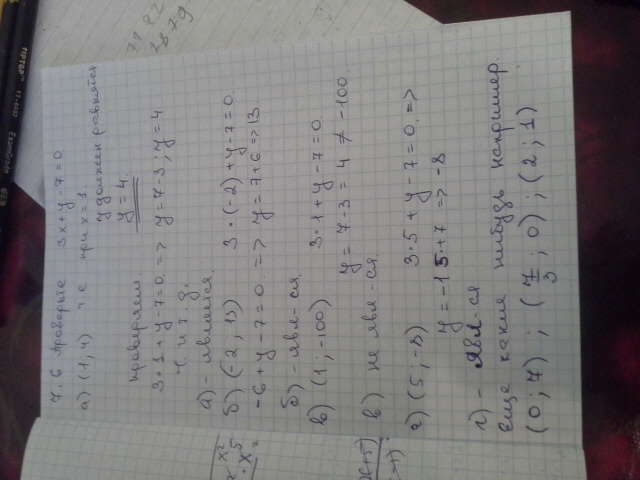 7.6 проверьте 3x+y-7=0
а) (1; 4) т.е при x=1.
y должен равнятся
y=4
проверяем.
3·1+y-7=0. => y=7-3; y=4
ч. и т. д.
а) - является.
б) (-2; 13) 3·(-2)+y-7=0
-6+y-7=0 => y=7+6 => 13
б) - явл-ся.
в) (1; -100) 3·1+y-7=0.
y=7-3=4 ≠ -100.
в) не явл-ся.
г) (5; -8) 3·5+y-7=0. =>
y=-15+7 => -8
г) - явл-ся
Еще какие нибудь например.
(0; 7); (7/3; 0); (2; 1)